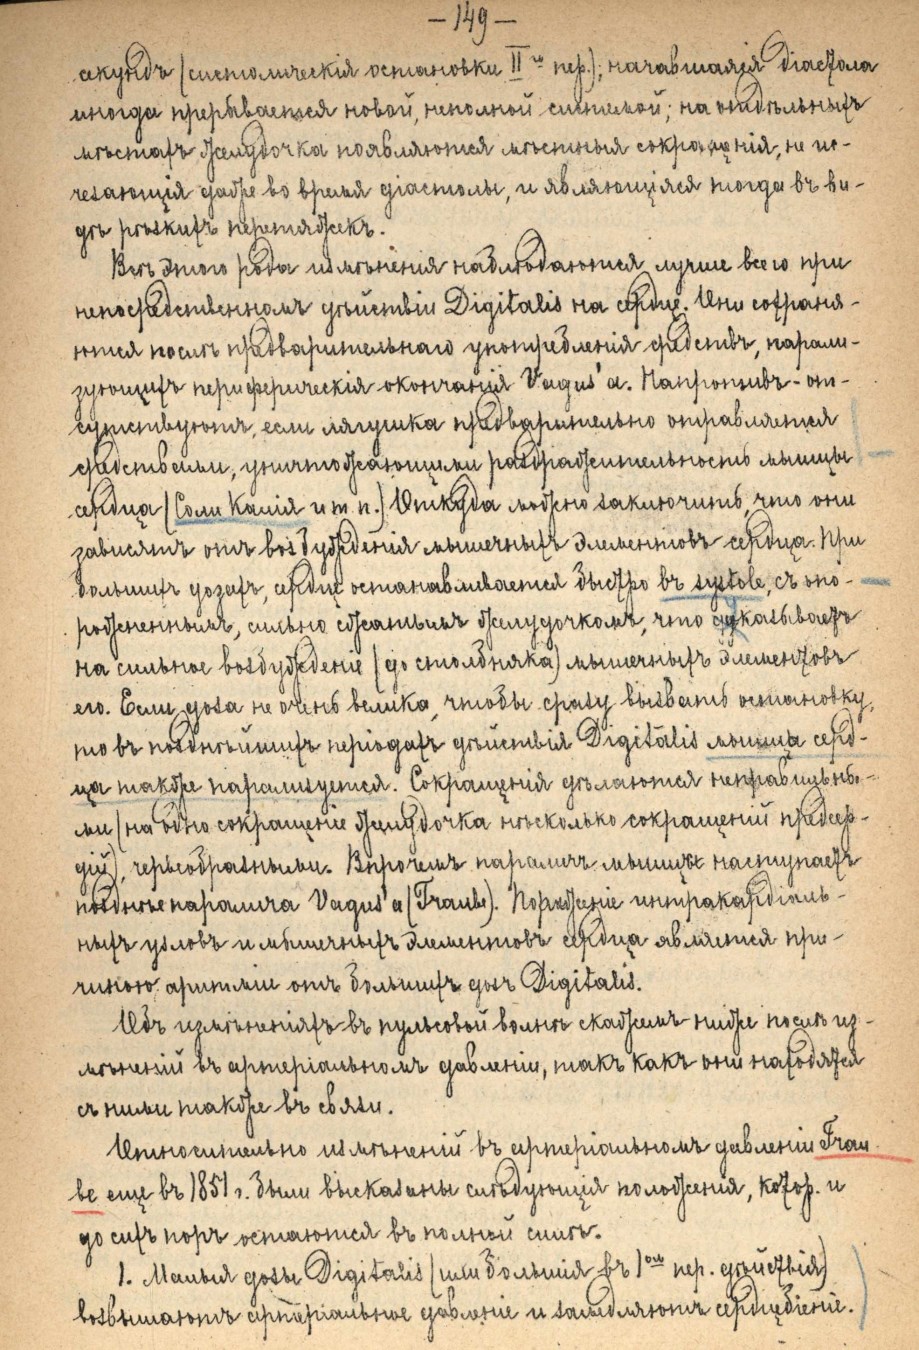 — 149 —
секундъ (систолическія остановки II го пер.); начавшаяся діастола
иногда прерывается новой, неполной систолой; на отдѣльныхъ
мѣстахъ желудочка появляются мѣстныя сокращенія, не ис-
чезающія даже во время діастолы, и являющіяся тогда въ ви-
дѣ рѣзкихъ перетяжекъ.
Всѣ этого рода измѣненія наблюдаются лучше всего при
непосредственномъ дѣйствіи Digitalis на сердце. Они сохраня-
ются послѣ предварительнаго употребленія средствъ, парали-
зующихъ периферическія окончанія Vagus'a. Напротивъ - от-
сутствуютъ, если лягушка предварительно отравляется
средствами, уничтожающими раздражительность мышцы
сердца (Соли Калія и т. п.) Откуда можно заключить, что они
зависятъ отъ возбужденія мышечныхъ элементовъ сердца. При
большихъ дозахъ, сердце останавливается быстро въ systole, съ опо-
рожненнымъ, сильно сжатымъ желудочкомъ, что указываетъ
на сильное возбужденіе (до столбняка) мышечныхъ элементовъ
его. Если доза не очень велика, чтобы сразу вызвать остановку,
то въ позднѣйшихъ періодахъ дѣйствія Digitalis мышца серд-
ца также парализуется. Сокращенія дѣлаются неправильны-
ми (на одно сокращеніе желудочка нѣсколько сокращеній предсер-
дій), червеобразными. Впрочемъ параличъ мышцы наступаетъ
позднѣе паралича Vagus'a (Traube). Пораженіе интракардіаль-
ныхъ узловъ и мышечныхъ элементовъ сердца является при-
чиною аритміи отъ большихъ дозъ Digitalis.
Объ измѣненіяхъ въ пульсовой волнѣ скажемъ ниже послѣ из-
мѣненій въ артеріальномъ давленіи, такъ какъ они находятся
съ ними также въ связи.
Относительно измѣненій въ артеріальномъ давленіи Trau
be еще въ 1851 г. были высказаны слѣдующія положенія, котор. и
до сихъ поръ остаются въ полной силѣ.
1. Малыя дозы Digitalis (или большія въ 1 омъ пер. дѣйствія)
возвышаютъ артеріальное давленіе и замедляютъ сердцебіеніе.